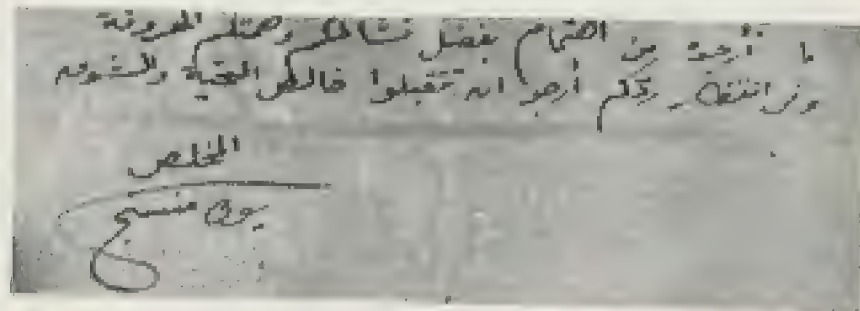 ما أرجوه من اهتمام بفضل نشاطكم وهمتكم المعروفة
وفي انتظار ردكم أرجو ان تتقبلوا خالص التحية والتشوق
المخلص